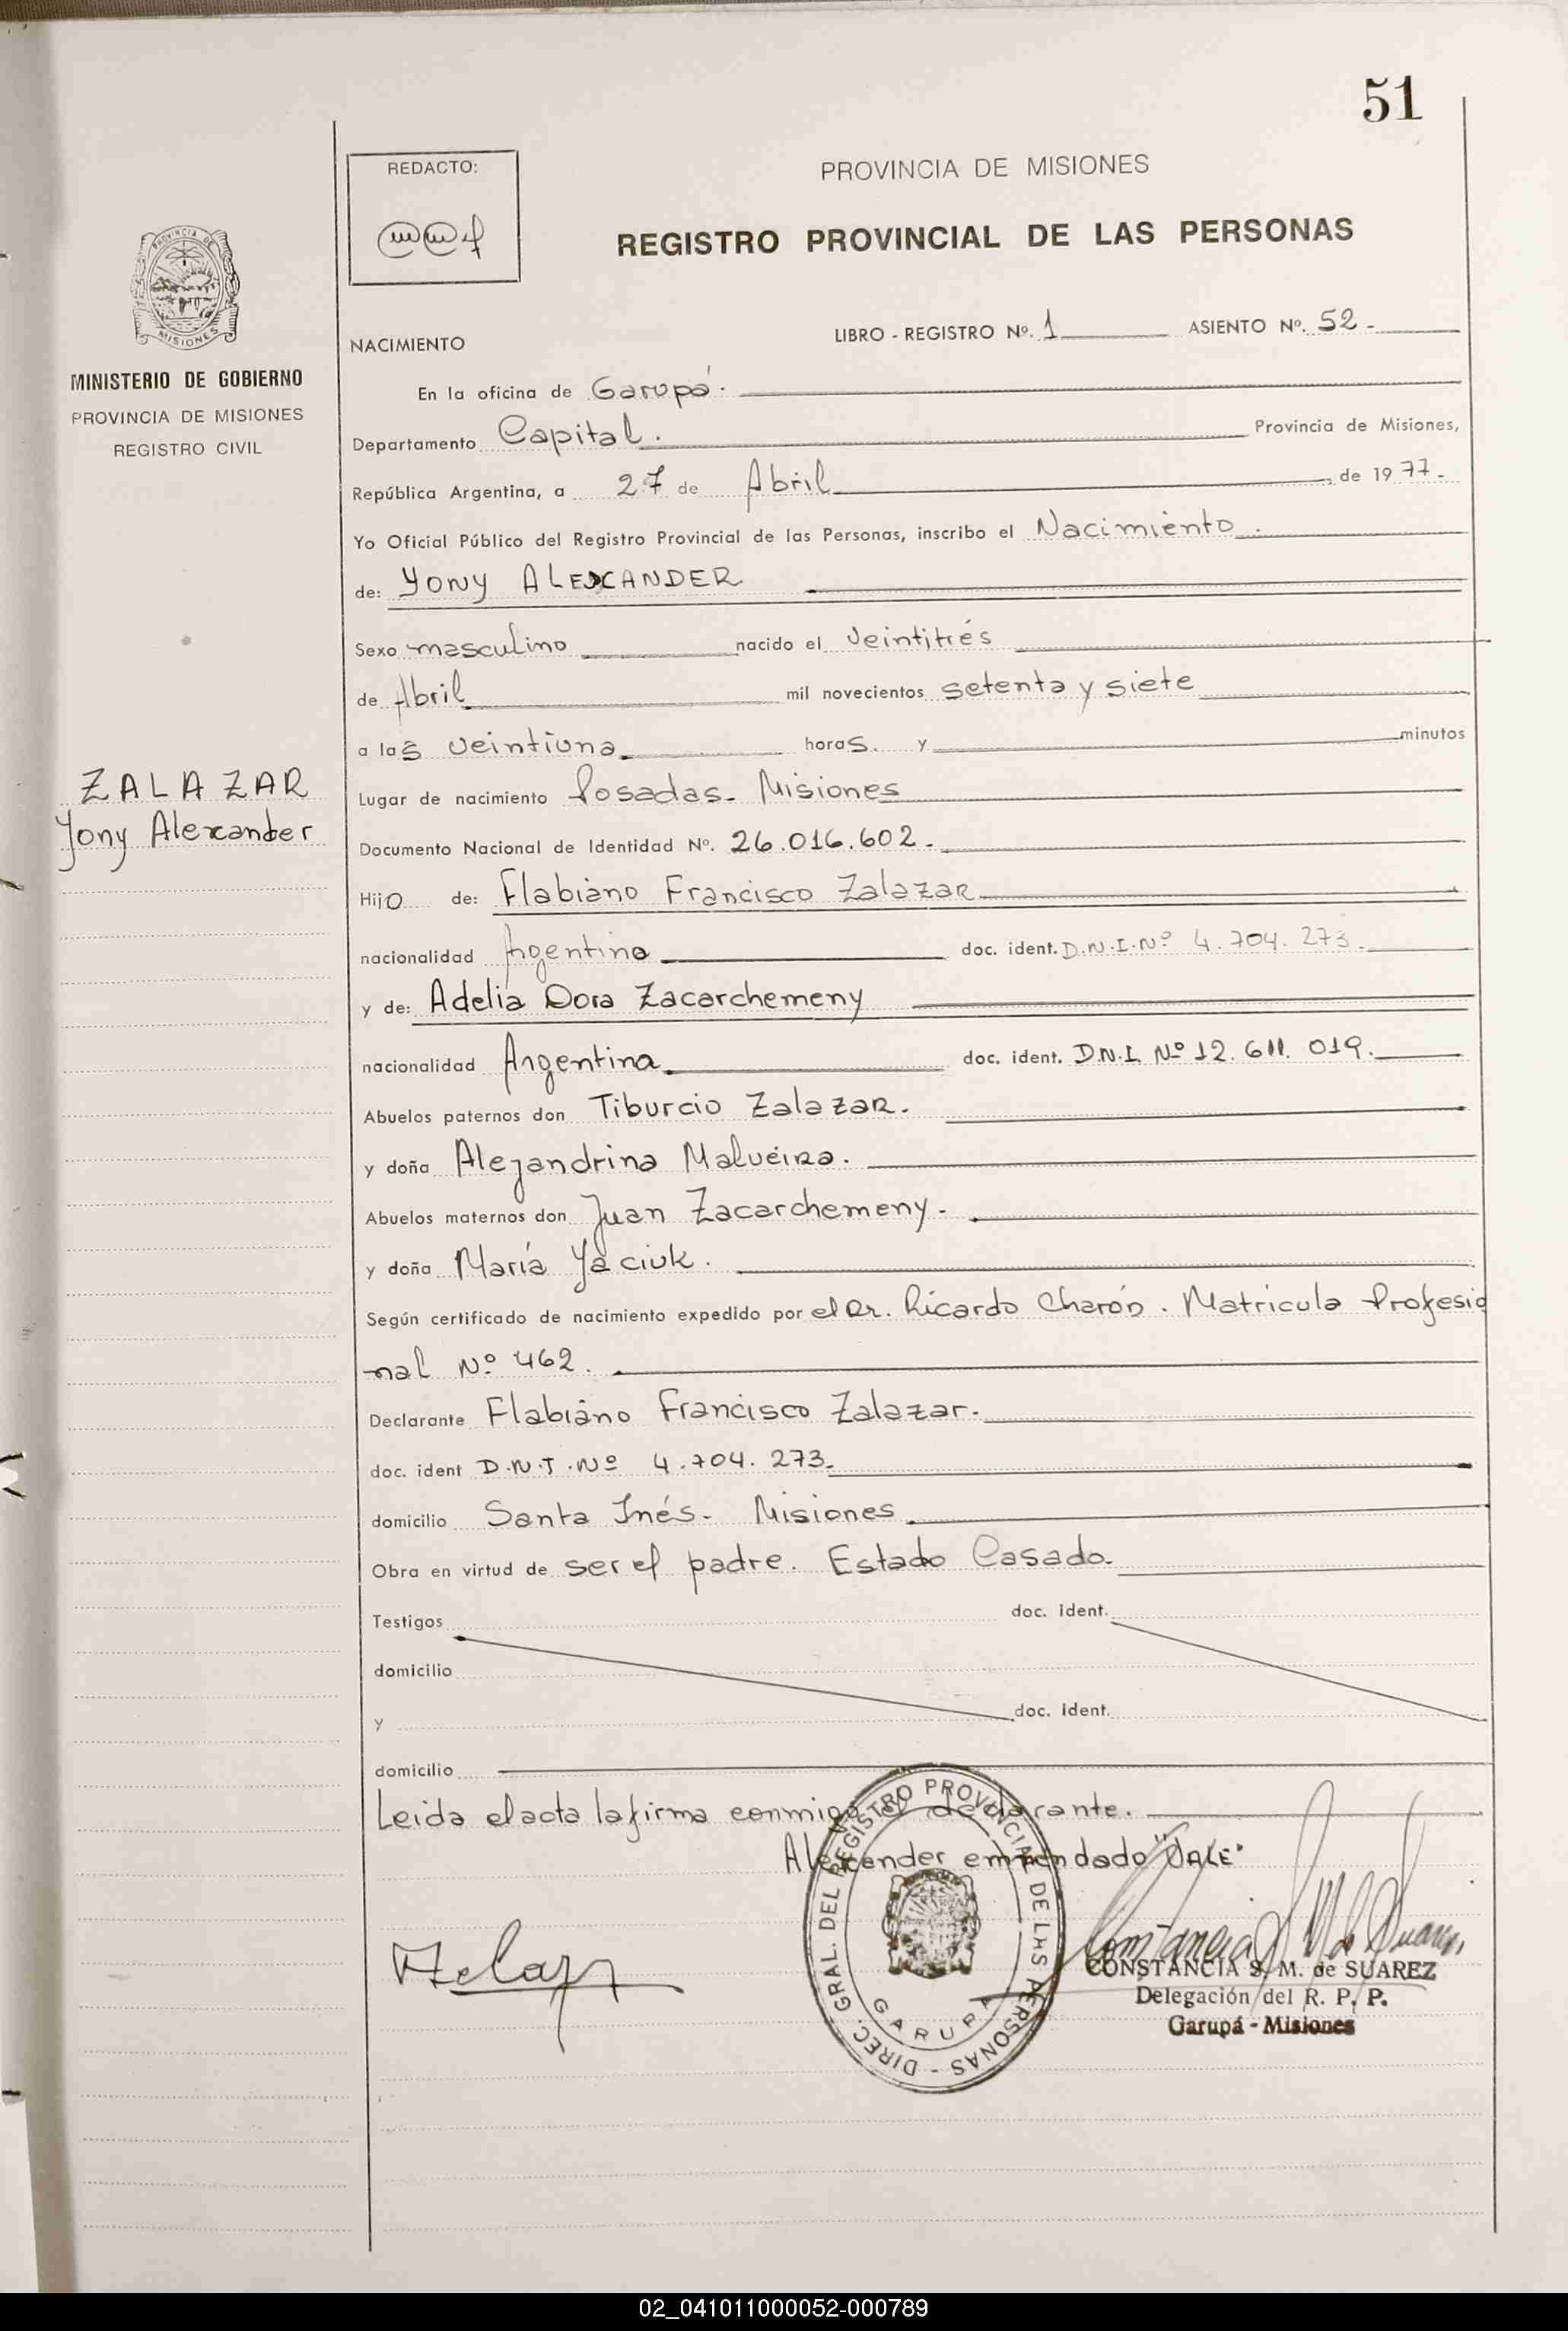 51
REDACTO:
PROVINCIA DE MISIONES
REGISTRO PROVINCIAL DE LAS PERSONAS
PROVINCIA DE
MISIONES
MINISTERIO DE GOBIERNO
PROVINCIA DE MISIONES
REGISTRO CIVIL
NACIMIENTO
LIBRO - REGISTRO Nº. 1 ASIENTO Nº. 52 -
En la oficina de Garupá.
Departamento Capital. Provincia de Misiones,
República Argentina, a 27 de Abril, de 1977.
Yo Oficial Público del Registro Provincial de las Personas, inscribo el Nacimiento.
de: YONY ALEXANDER
Sexo masculino nacido el veintitrés
de Abril mil novecientos setenta y siete
a las veintiuna horas. y minutos
ZALAZAR
Yony Alexander
Lugar de nacimiento Posadas- Misiones
Documento Nacional de Identidad Nº. 26.016.602.
Hijo de: Flabiano Francisco Zalazar
nacionalidad Argentino doc. ident. D.N.I.Nº 4.704.273.
y de: Adelia Dora Zacarchemeny
nacionalidad Argentina doc. ident. D.N.I. Nº 12.611.019.
Abuelos paternos don Tiburcio Zalazar.
y doña Alejandrina Malveira.
Abuelos maternos don Juan Zacarchemeny.
y doña María Yaciuk.
Según certificado de nacimiento expedido por el Dr. Ricardo Charón. Matricula Profesio
nal Nº 462.
Declarante Flabiano Francisco Zalazar.
doc. ident D.N.I.Nº 4.704.273.
domicilio Santa Inés- Misiones
Obra en virtud de ser el padre. Estado Casado.
Testigos doc. ident.
domicilio
y doc. ident.
domicilio
Leida el acta la firma conmigo el declarante.
Alexander enmendado "VALE"
DIREC. GRAL. DEL REGISTRO PROVINCIAL DE LAS PERSONAS -
GARUPA
CONSTANCIA S. M. de SUAREZ
Delegación del R. P. P.
Garupá - Misiones
02_041011000052-000789